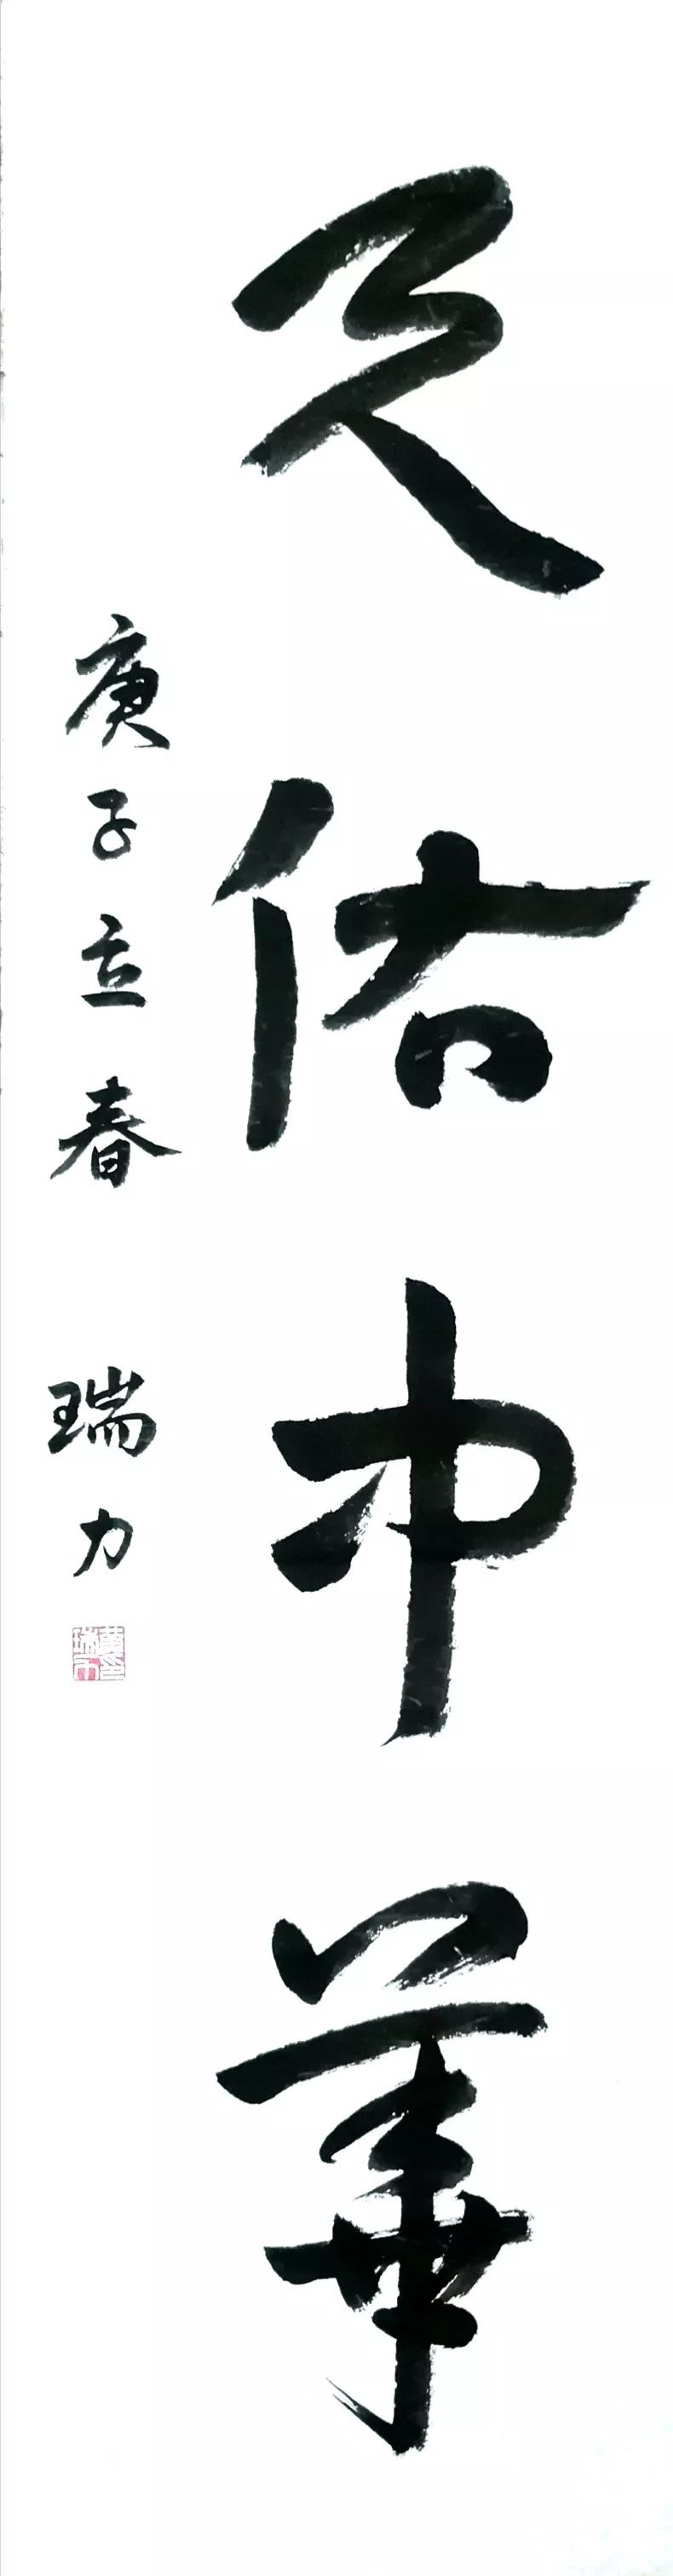 天佑中華
庚子立春 瑞力